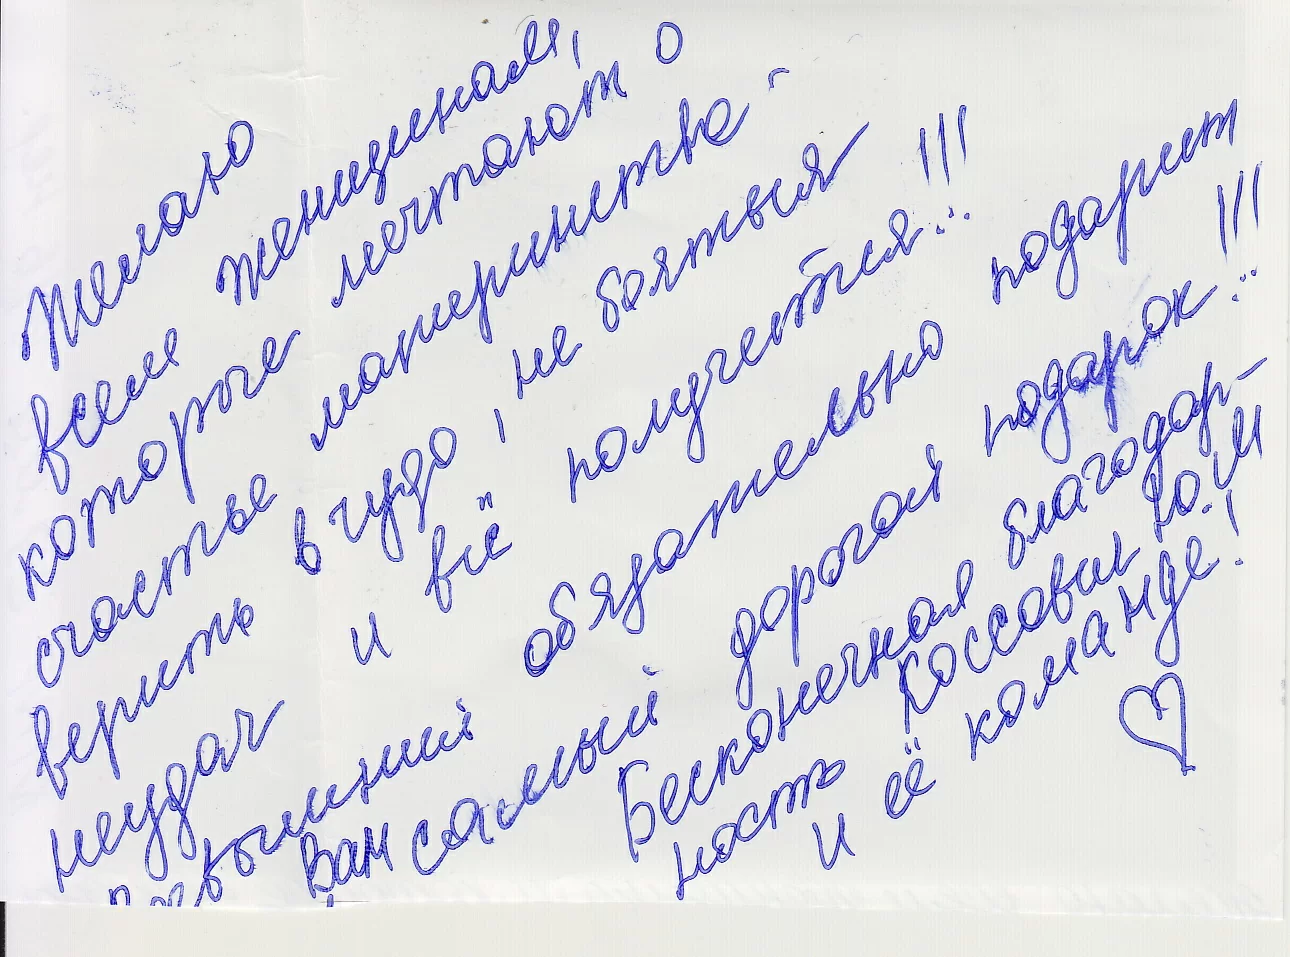 Желаю
всем женщинам,
которые мечтают о
счастье материнства -
верить в чудо, не бояться
неудач и всё получется!!!
Всевышний обязательно подарит
Вам самый дорогой подарок!!!
Бесконечная благодар-
ность Коссович Ю.М
и её команде!